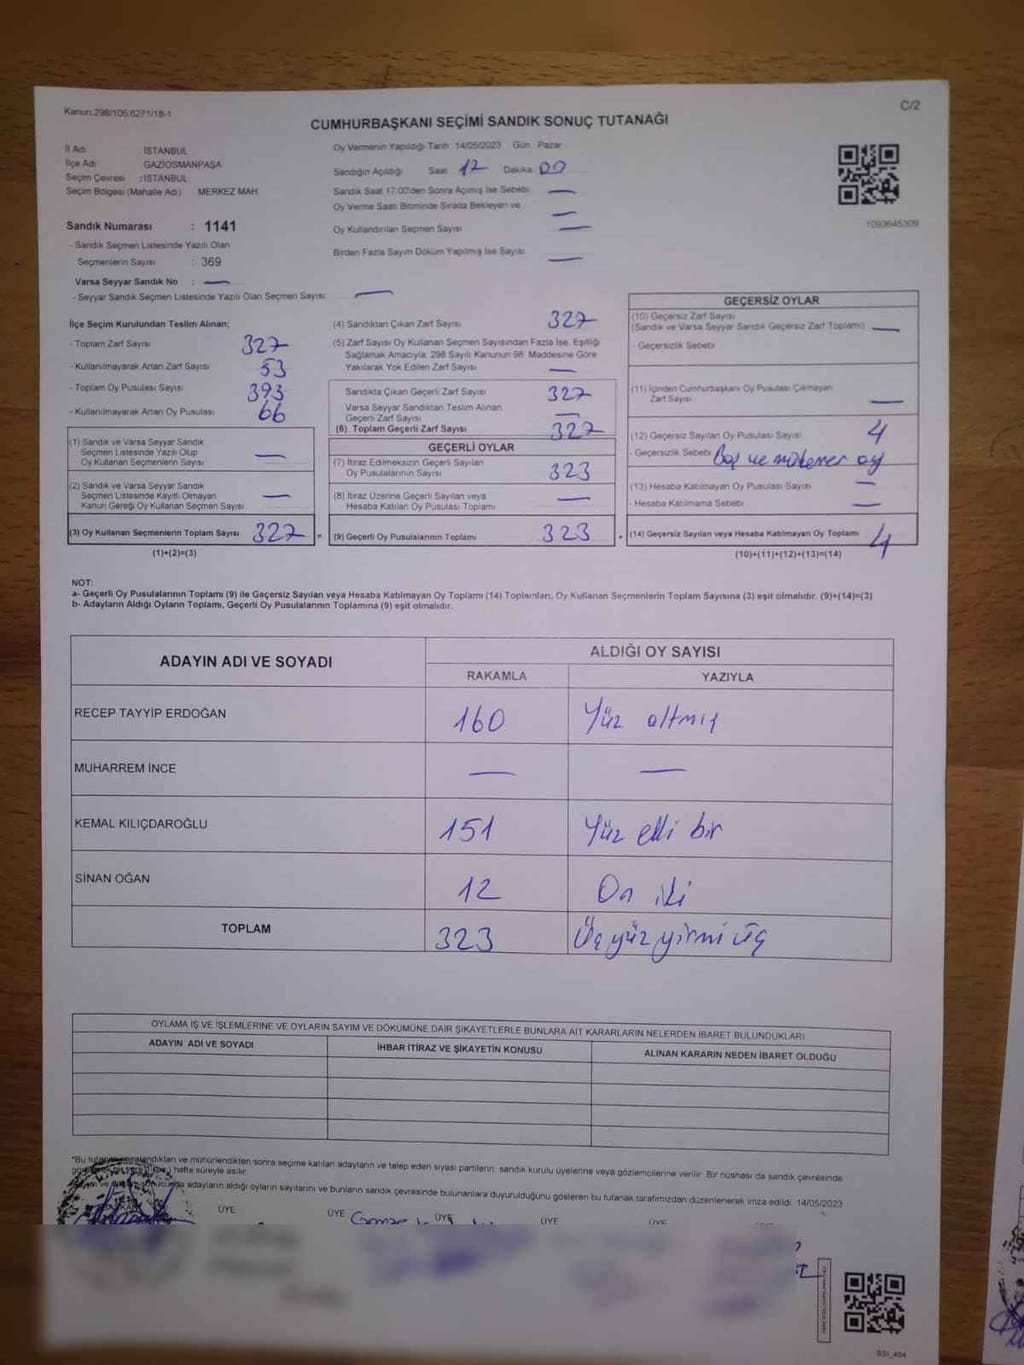 Kanun.298/105.6271/18-1
C/2
CUMHURBAŞKANI SEÇİMİ SANDIK SONUÇ TUTANAĞI
İl Adı : İSTANBUL
İlçe Adı : GAZİOSMANPAŞA
Seçim Çevresi : İSTANBUL
Seçim Bölgesi (Mahalle Adı) MERKEZ MAH.
Sandık Numarası : 1141
- Sandık Seçmen Listesinde Yazılı Olan
Seçmenlerin Sayısı : 369
Varsa Seyyar Sandık No : —
- Seyyar Sandık Seçmen Listesinde Yazılı Olan Seçmen Sayısı: —
Oy Vermenin Yapıldığı Tarih 14/05/2023 Gün Pazar
Sandığın Açıldığı Saat 17 Dakika 00
Sandık Saat 17:00'den Sonra Açılmış İse Sebebi —
Oy Verme Saati Bitiminde Sırada Bekleyen ve —
Oy Kullandırılan Seçmen Sayısı —
Birden Fazla Sayım Döküm Yapılmış İse Sayısı —
1093645309
İlçe Seçim Kurulundan Teslim Alınan;
- Toplam Zarf Sayısı 327
- Kullanılmayarak Artan Zarf Sayısı 53
- Toplam Oy Pusulası Sayısı 393
- Kullanılmayarak Artan Oy Pusulası 66
(1) Sandık ve Varsa Seyyar Sandık
Seçmen Listesinde Yazılı Olup
Oy Kullanan Seçmenlerin Sayısı —
(2) Sandık ve Varsa Seyyar Sandık
Seçmen Listesinde Kayıtlı Olmayan
Kanun Gereği Oy Kullanan Seçmen Sayısı —
(3) Oy Kullanan Seçmenlerin Toplam Sayısı 327 =
(1)+(2)=(3)
(4) Sandıktan Çıkan Zarf Sayısı 327
(5) Zarf Sayısı Oy Kullanan Seçmen Sayısından Fazla İse, Eşitliği
Sağlamak Amacıyla, 298 Sayılı Kanunun 98. Maddesine Göre
Yakılarak Yok Edilen Zarf Sayısı —
Sandıkta Çıkan Geçerli Zarf Sayısı 327
Varsa Seyyar Sandıktan Teslim Alınan
Geçerli Zarf Sayısı —
(6) Toplam Geçerli Zarf Sayısı 327
GEÇERLİ OYLAR
(7) İtiraz Edilmeksizin Geçerli Sayılan
Oy Pusulalarının Sayısı 323
(8) İtiraz Üzerine Geçerli Sayılan veya
Hesaba Katılan Oy Pusulası Toplamı —
(9) Geçerli Oy Pusulalarının Toplamı 323 +
GEÇERSİZ OYLAR
(10) Geçersiz Zarf Sayısı
(Sandık ve Varsa Seyyar Sandık Geçersiz Zarf Toplamı) —
- Geçersizlik Sebebi
(11) İçinden Cumhurbaşkanı Oy Pusulası Çıkmayan
Zarf Sayısı —
(12) Geçersiz Sayılan Oy Pusulası Sayısı 4
- Geçersizlik Sebebi Boş ve mükerrer oy
(13) Hesaba Katılmayan Oy Pusulası Sayısı —
- Hesaba Katılmama Sebebi —
(14) Geçersiz Sayılan veya Hesaba Katılmayan Oy Toplamı 4
(10)+(11)+(12)+(13)=(14)
NOT:
a- Geçerli Oy Pusulalarının Toplamı (9) ile Geçersiz Sayılan veya Hesaba Katılmayan Oy Toplamı (14) Toplamları, Oy Kullanan Seçmenlerin Toplam Sayısına (3) eşit olmalıdır. (9)+(14)=(3)
b- Adayların Aldığı Oyların Toplamı, Geçerli Oy Pusulalarının Toplamına (9) eşit olmalıdır.
ADAYIN ADI VE SOYADI ALDIĞI OY SAYISI
RAKAMLA YAZIYLA
RECEP TAYYİP ERDOĞAN 160 Yüz altmış
MUHARREM İNCE — —
KEMAL KILIÇDAROĞLU 151 Yüz elli bir
SİNAN OĞAN 12 On iki
TOPLAM 323 Üç yüz yirmi üç
OYLAMA İŞ VE İŞLEMLERİNE VE OYLARIN SAYIM VE DÖKÜMÜNE DAİR ŞİKAYETLERLE BUNLARA AİT KARARLARIN NELERDEN İBARET BULUNDUKLARI
ADAYIN ADI VE SOYADI İHBAR İTİRAZ VE ŞİKAYETİN KONUSU ALINAN KARARIN NEDEN İBARET OLDUĞU
*Bu ve mühürlendikten sonra seçime katılan adayların ve talep eden siyasi partilerin, sandık kurulu üyelerine veya gözlemcilerine verilir. Bir nüshası da sandık çevresinde
hafta süreyle asılır.
adayların aldığı oyların sayılarını ve bunların sandık çevresinde bulunanlara duyurulduğunu gösteren bu tutanak tarafımızdan düzenlenerek imza edildi. 14/05/2023
ÜYE ÜYE ÜYE ÜYE ÜYE
SSİ_404